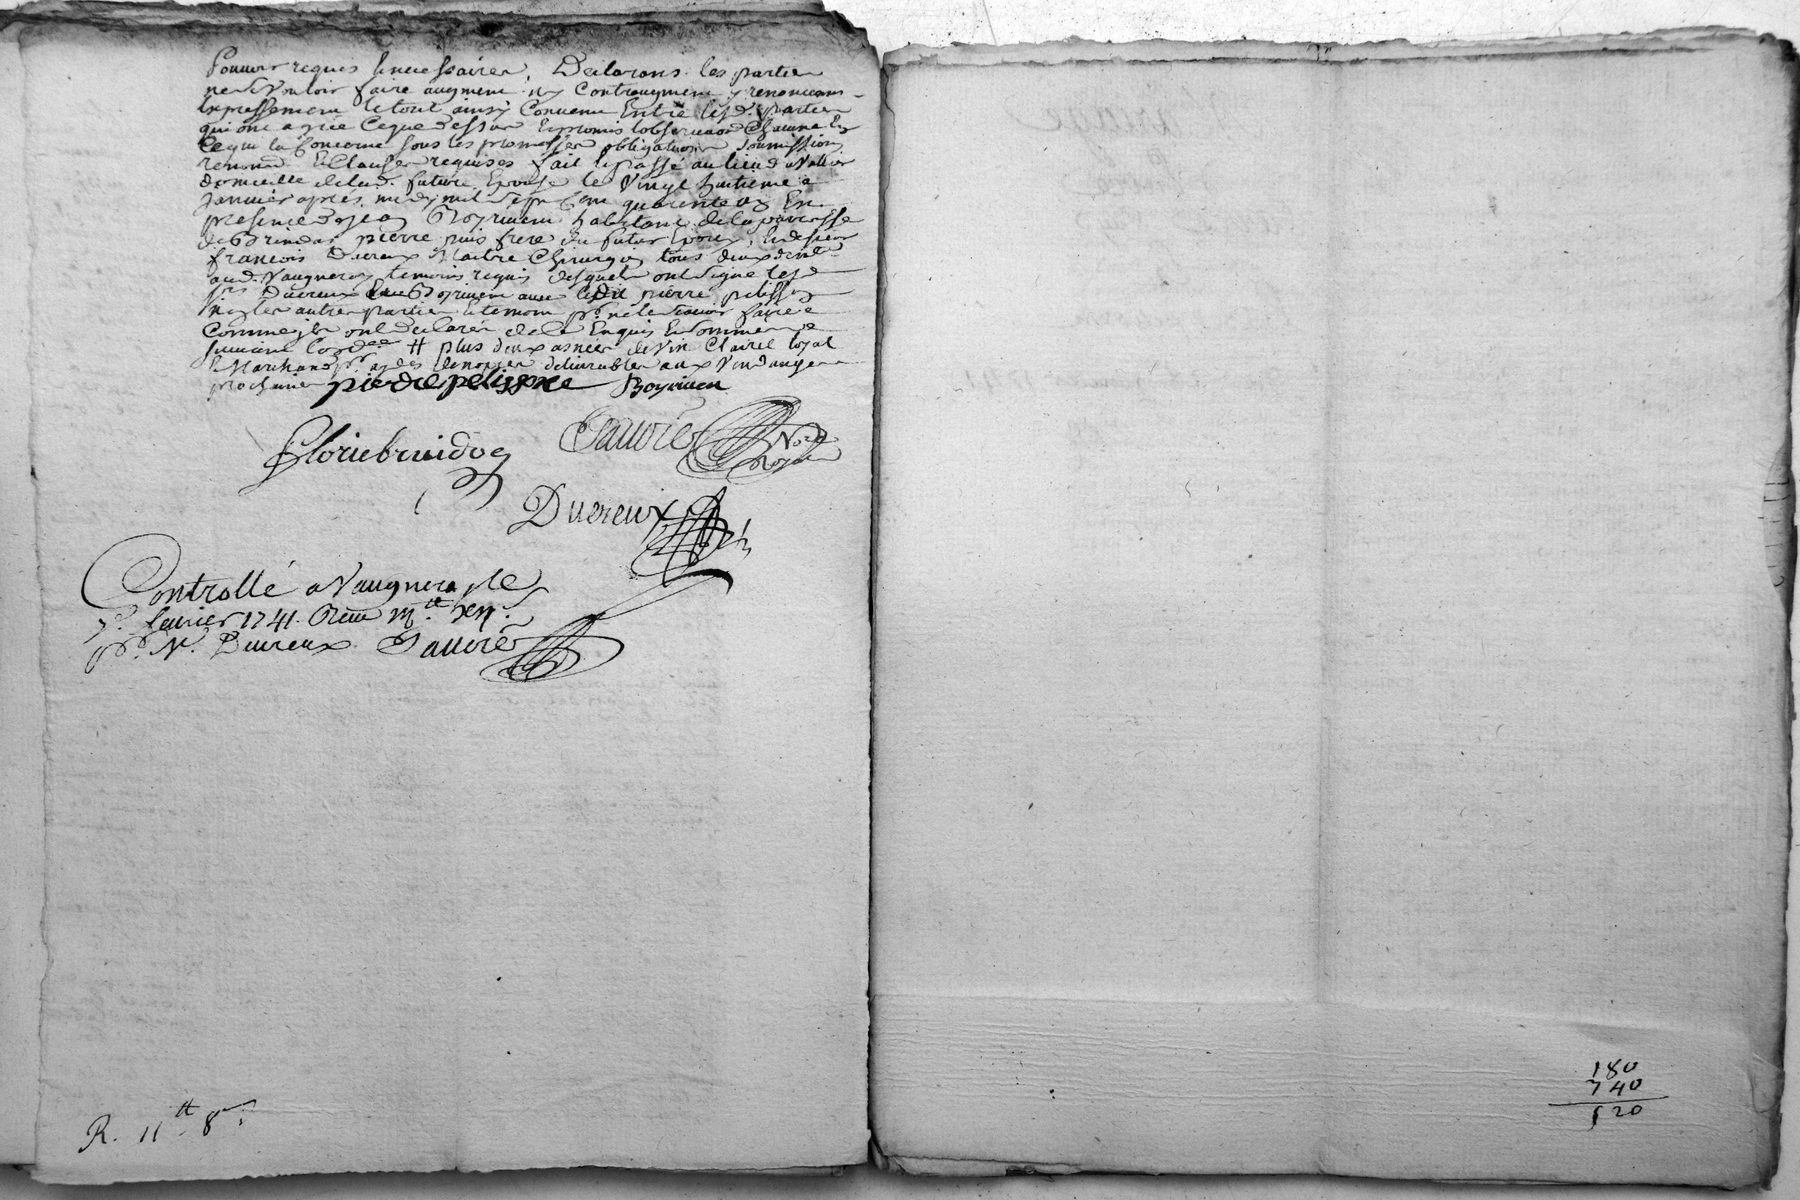 Pouvoir requis & necessaires, Declarans les parties
ne vouloir faire augment ny Contraugment y renoncans
Expressement le tout ainsy Convenu Entre lesd. parties
qui ont agréé Ceque dessus Et promis lobserver Chacune En
Cequi la Concerne sous les promesses obligations soumissions
renond. & Clauses requises fait & passé au lieu
domicille de lad. future Epouse le Vingt huitieme
Janvier après midy mil sept Cent quarente un En
presence de Jean Boyrivent habitant de la paroisse
de Brindas, pierre puis frere du futur Epoux, & de sieur
francois Ducreux Maitre Chirurgien tous deux
aud. Vaugneray temoins requis desquels ont signé lesd.
srs Ducreux & Boyrivent avec led pierre pelisson
Non les autres parties & temoin pr. ne le scavoir faire
Comme ils ont declaré de ce Enquis Et sommés
suivant lord.ce # plus deux asnées de vin Clairet loyal
& Marchand delivrables aux Vendanges
prochaines pierre pelissone Boyriven
floriebruidon Sauvré No.re royal
Ducreux
Controllé a Vaugneray le
7.e fevrier 1741. Recu
pr. Mr. Ducreux Sauvré
R. 11 tt 8 s
180
740
520